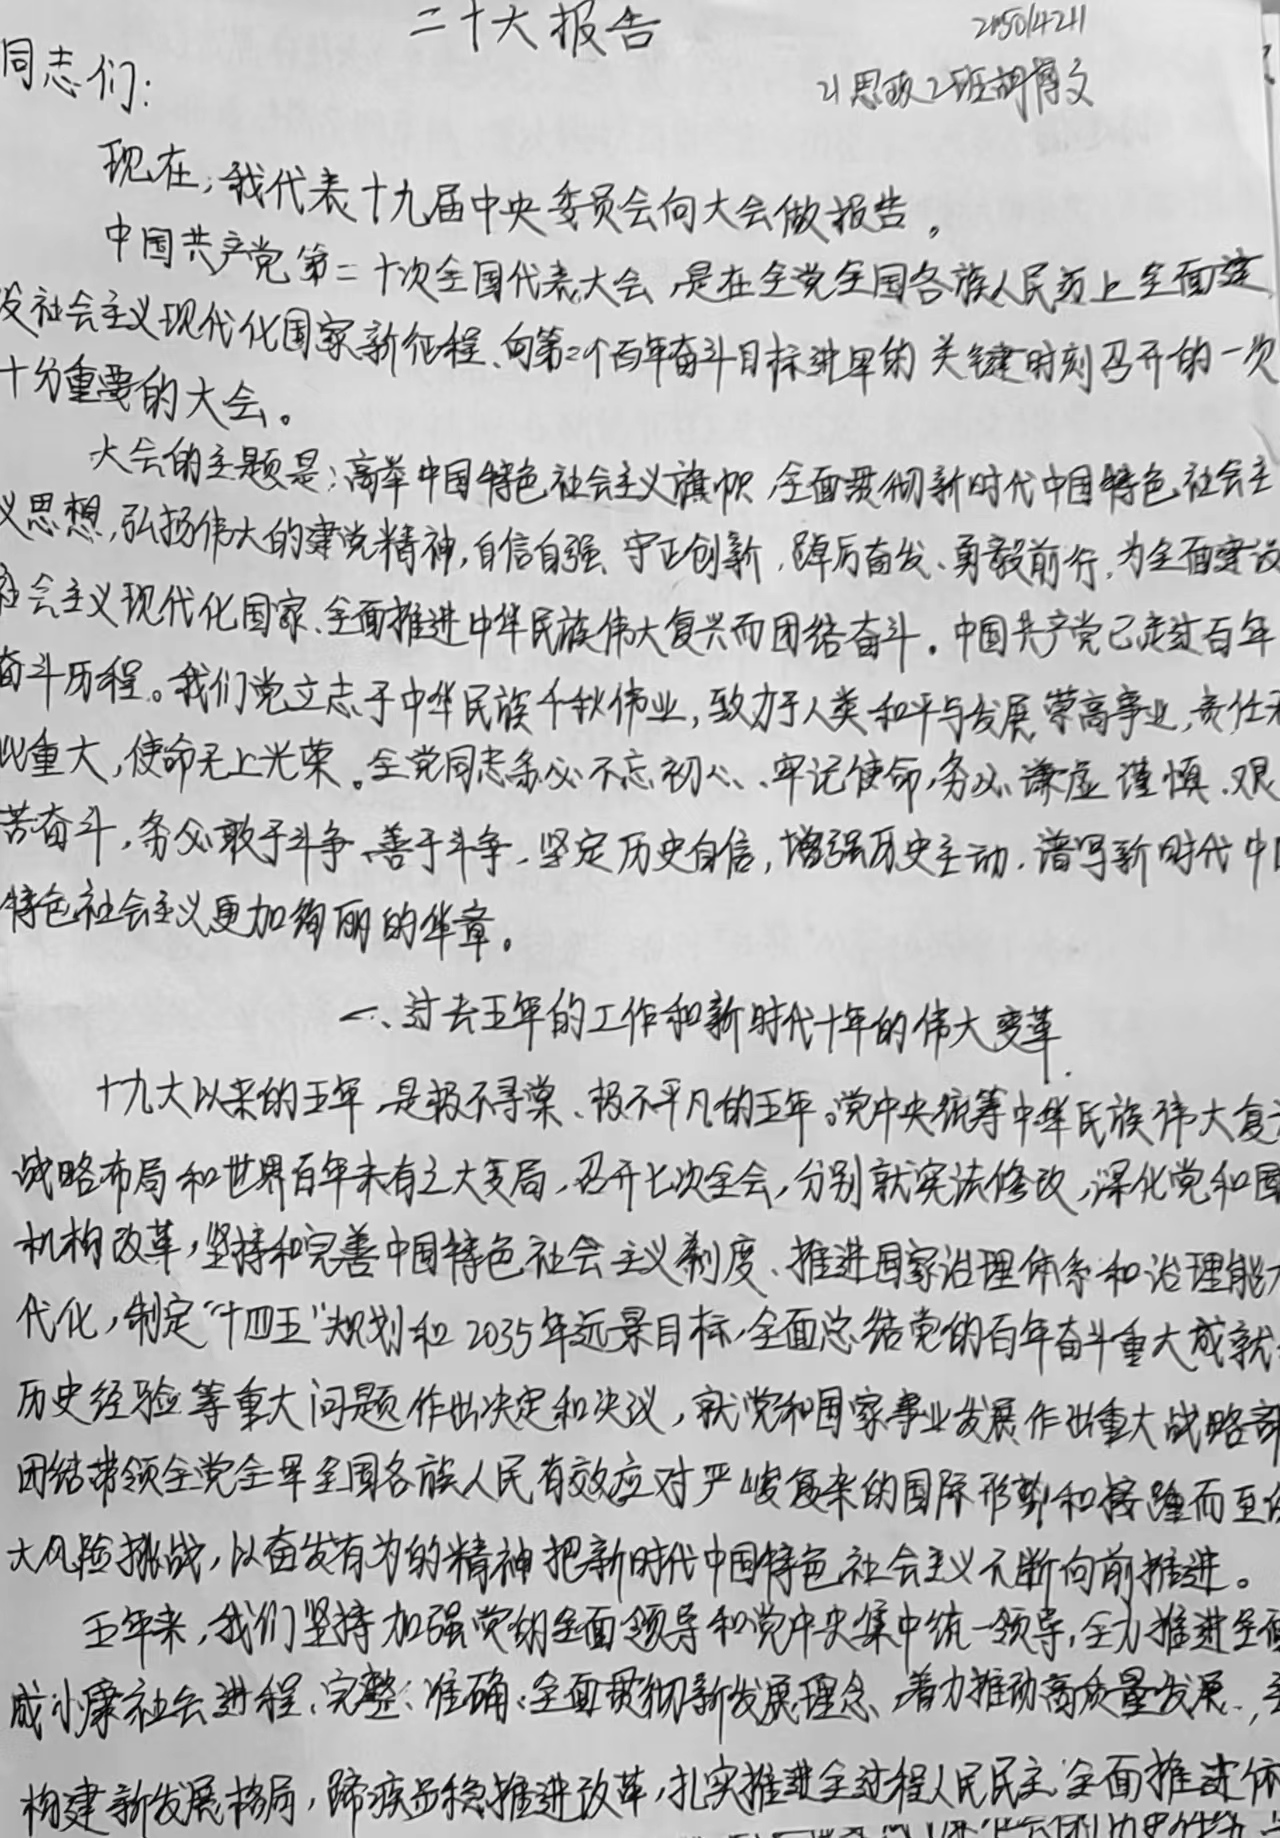 二十大报告
同志们:
21思政2班胡博文
现在,我代表十九届中央委员会向大会做报告。
中国共产党第二十次全国代表大会,是在全党全国各族人民迈上全面建
设社会主义现代化国家新征程、向第二个百年奋斗目标进军的关键时刻召开的一次
十分重要的大会。
大会的主题是:高举中国特色社会主义旗帜,全面贯彻新时代中国特色社会主
义思想,弘扬伟大的建党精神,自信自强、守正创新,踔厉奋发、勇毅前行,为全面建设
社会主义现代化国家、全面推进中华民族伟大复兴而团结奋斗。中国共产党已走过百年
奋斗历程。我们党立志于中华民族千秋伟业,致力于人类和平与发展崇高事业,责任无
比重大,使命无上光荣。全党同志务必不忘初心、牢记使命,务必谦虚谨慎、艰
苦奋斗,务必敢于斗争、善于斗争,坚定历史自信,增强历史主动,谱写新时代中国
特色社会主义更加绚丽的华章。
一、过去五年的工作和新时代十年的伟大变革
十九大以来的五年,是极不寻常、极不平凡的五年。党中央统筹中华民族伟大复兴
战略布局和世界百年未有之大变局,召开七次全会,分别就宪法修改,深化党和国
机构改革,坚持和完善中国特色社会主义制度、推进国家治理体系和治理能力
代化,制定"十四五"规划和2035年远景目标,全面总结党的百年奋斗重大成就
历史经验等重大问题作出决定和决议,就党和国家事业发展作出重大战略部
团结带领全党全军全国各族人民有效应对严峻复杂的国际形势和接踵而至的
大风险挑战,以奋发有为的精神把新时代中国特色社会主义不断向前推进。
五年来,我们坚持加强党的全面领导和党中央集中统一领导,全力推进全面
成小康社会进程,完整、准确、全面贯彻新发展理念,着力推动高质量发展,主
构建新发展格局,蹄疾步稳推进改革,扎实推进全过程人民民主,全面推进依